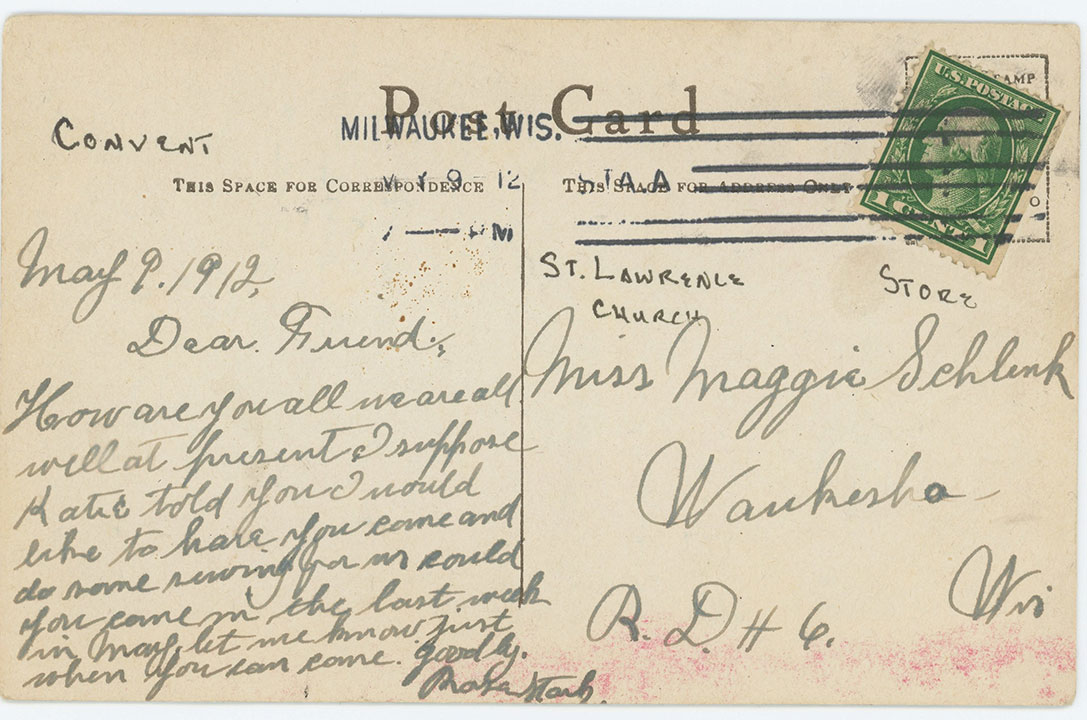 Post Card
CONVENT
MILWAUKEE, WIS.
MY 9 12
STA. A
M
U.S. POSTAGE
AMP
1 CENT 1
THIS SPACE FOR CORRESPONDENCE
THIS SPACE FOR ADDRESS ONLY
May 9. 1912,
Dear. Friend.,
How are you all we are all
well at present I suppose
Katie told you I would
like to have you come and
do some sewing for us could
you come in the last week
in May, let me know just
when you can come. goodby.
Stark
ST. LAWRENCE
CHURCH
STORE
Miss Maggie Schlenk
Waukesha
Wis
R. D # 6.